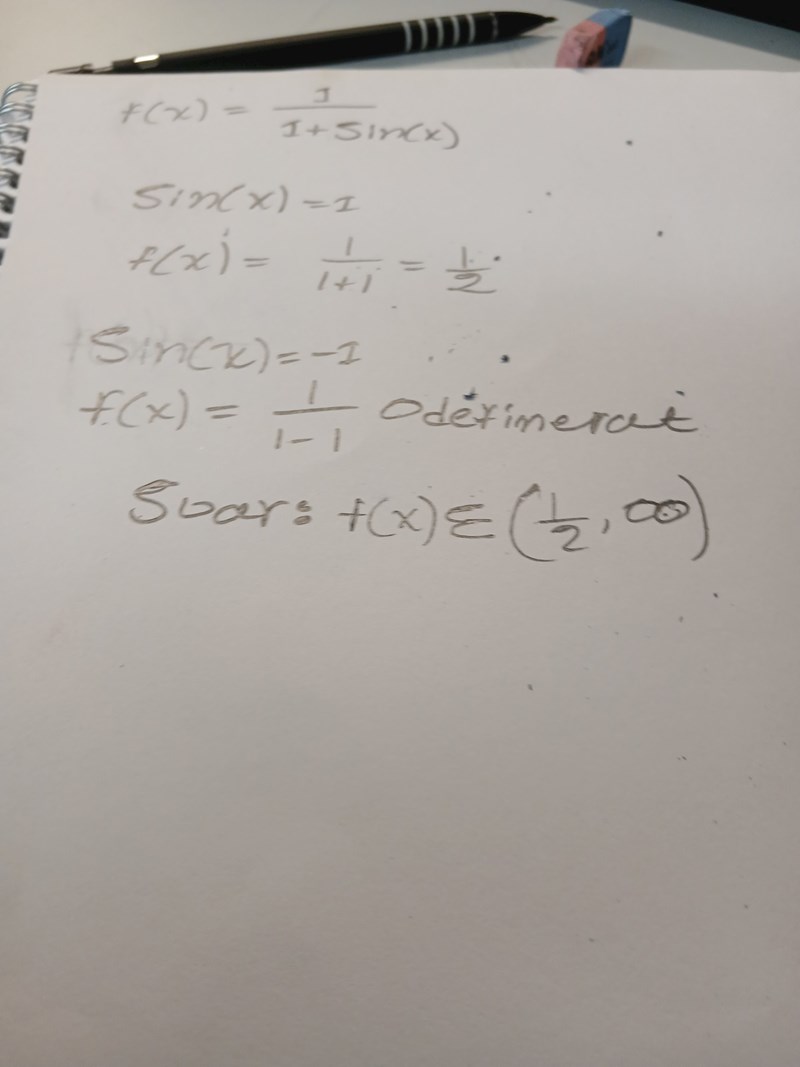 f(x) = 1/(1+Sin(x))
Sin(x) = 1
f(x) = 1/(1+1) = 1/2
Sin(x) = -1
f(x) = 1/(1-1) Odefinerat
Svar: f(x) ∈ (1/2, ∞)